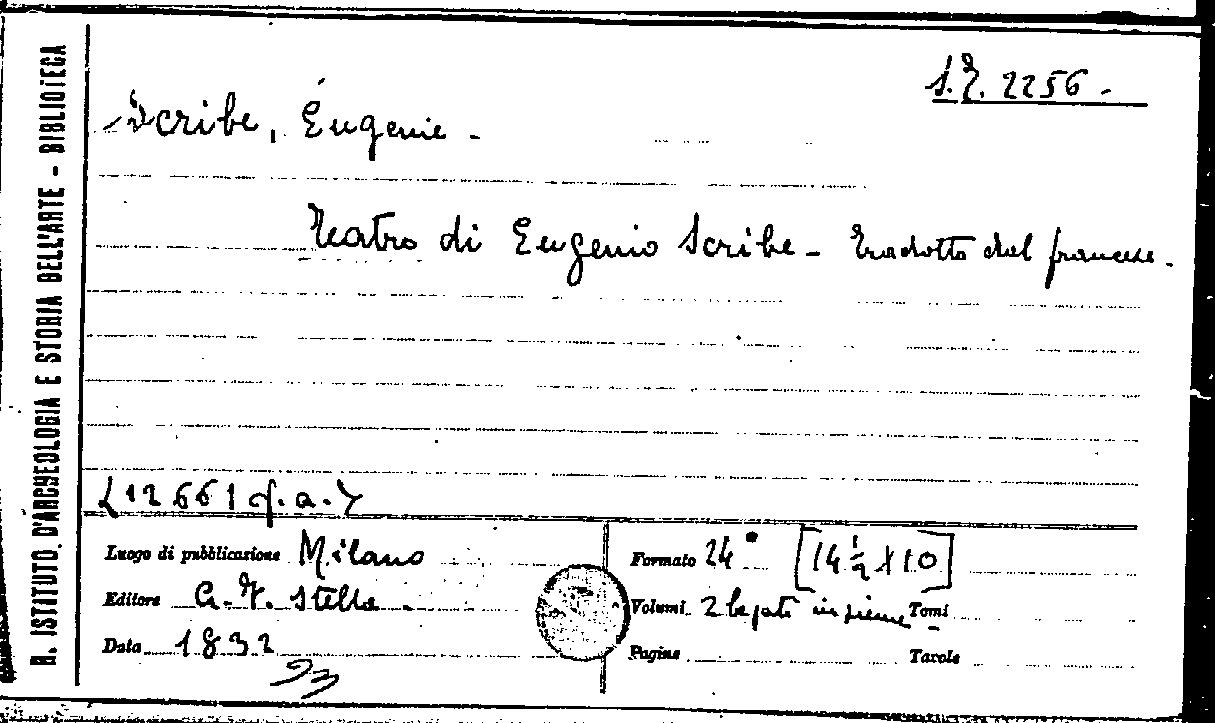 R. ISTITUTO D'ARCHEOLOGIA E STORIA DELL'ARTE - BIBLIOTECA
S.T. 2256.
Scribe, Eugenie.
Teatro di Eugenio Scribe - Tradotto dal francese.
[12661 f.a.]
Luogo di pubblicazione Milano
Editore A.F. Stella.
Data 1832
33
Formato 24° [14 1/2 x 10]
Volumi 2 legati insieme Tomi
Pagine Tavole